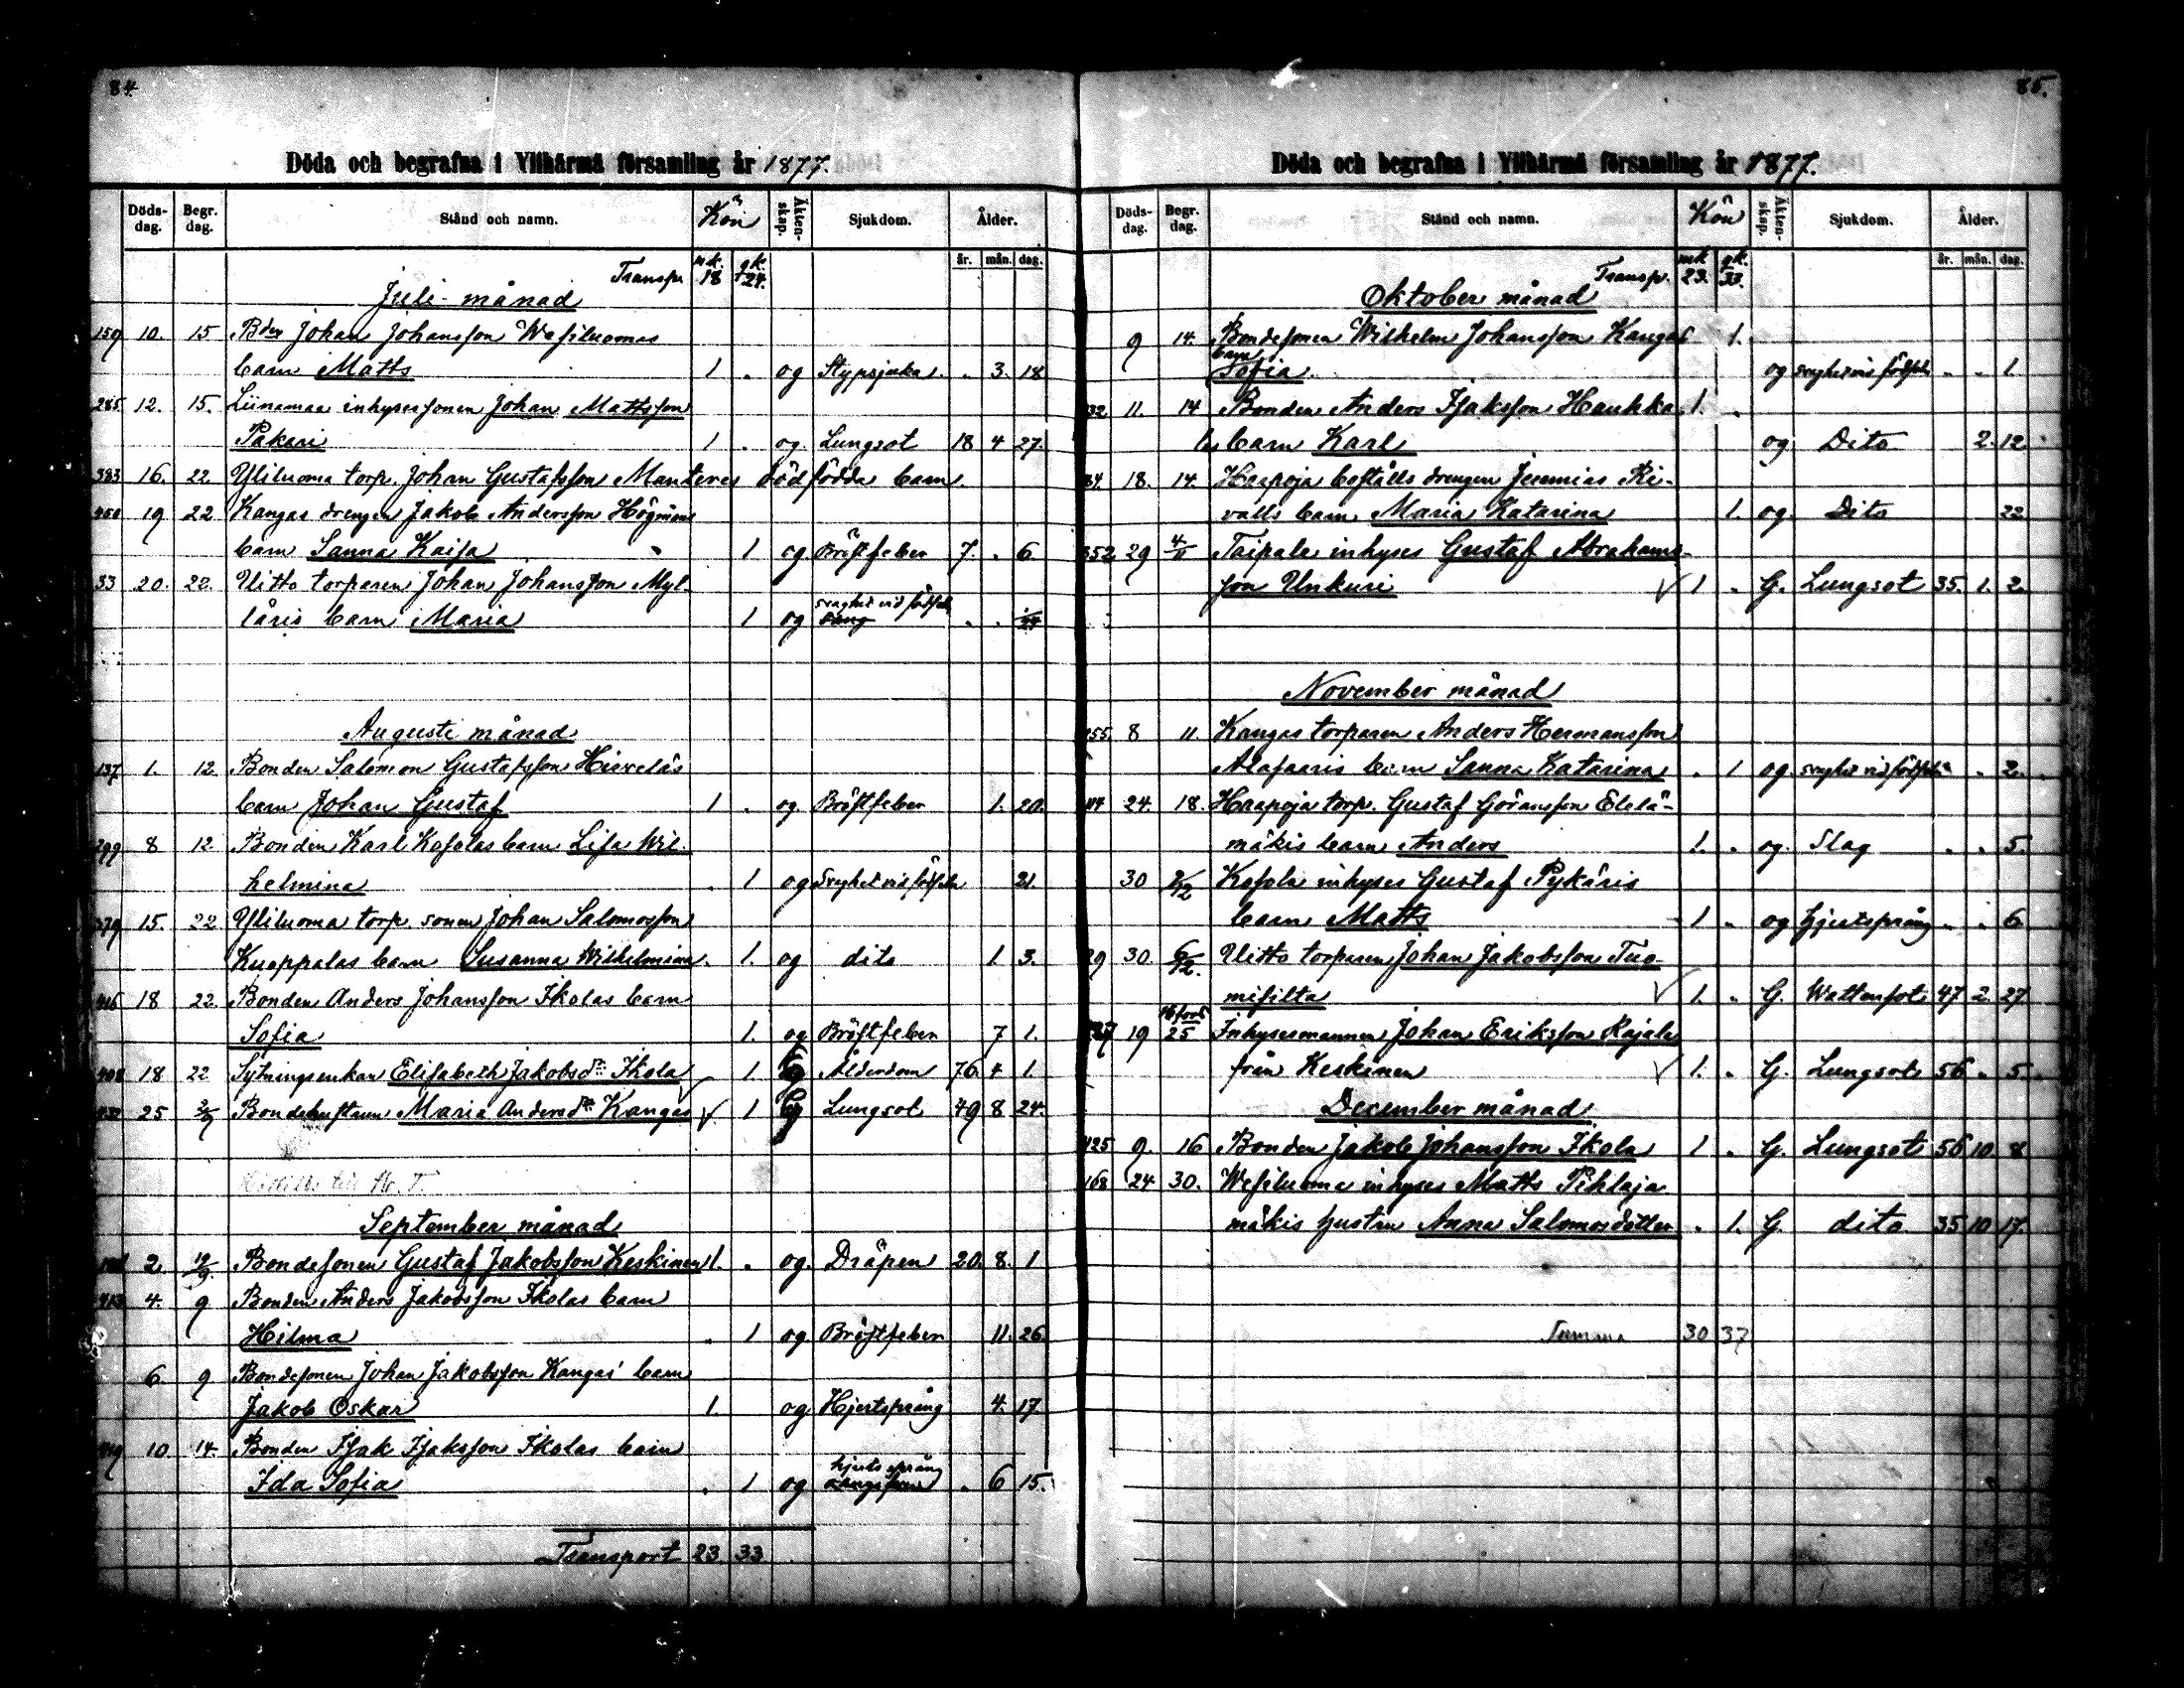 84.
Döda och begrafna i Ylihärmä församling år 1877.
Döds-dag. Begr. dag. Stånd och namn. Kön Äkten-skap. Sjukdom. Ålder.
år. mån. dag.
Transp. mk. 18 qk. 24.
Juli månad
159 10. 15 Bden Johan Johansson Wesiluomas
barn Matts 1 . og Stypsjuka . 3. 18
285 12. 15. Liinamaa inhysessonen Johan Mattsson
Pakari 1 . og. Lungsot 18 4 27.
383 16. 22 Yliluoma torp. Johan Gustafsson Manteres dödfödda barn.
450 19 22 Kangas drengen Jakob Andersson Högmans
barn Sanna Kaisa 1 og Bröstfeber 7. . 6
33 20. 22. Uitto torparen Johan Johansson Myl-
läris barn Maria 1 og svaghet vid födseln . .
Augusti månad
137 1. 12. Bonden Salomon Gustafsson Hirveläs
barn Johan Gustaf 1 . og. Bröstfeber 1. 20.
299 8 12 Bonden Karl Kosolas barn Lisa Wil-
helmina . 1 og Svaghet vid födseln 21.
379 15. 22 Yliluoma torp. sonen Johan Salomosson
Kuoppalas barn Susanna Wilhelmina . 1. og dito 1. 3.
416 18 22. Bonden Anders Johansson Ikolas barn
Sofia 1. og Bröstfeber 7 1.
408 18 22 Sytningsenkan Elisabeth Jakobsdr Ikola 1. G Ålderdom 76 4 1.
432 25 2/9 Bondehustrun Maria Andersdr Kangas 1 G Lungsot 49 8 24.
September månad
2. 12/9. Bondesonen Gustaf Jakobsson Keskinen 1. . og. Dråpen 20. 8. 1
413 4. 9 Bonden Anders Jakobsson Ikolas barn
Hilma . 1 og. Bröstfeber 11. 26.
6. 9. Bondesonen Johan Jakobsson Kangas' barn
Jakob Oskar 1. og Hjertsprång 4. 17.
419 10. 14. Bonden Isak Isaksson Ikolas barn
Ida Sofia . 1 og hjertsprång . 6 15.
Transport 23 33
85.
Döda och begrafna i Ylihärmä församling år 1877.
Döds-dag. Begr. dag. Stånd och namn. Kön Äkten-skap. Sjukdom. Ålder.
år. mån. dag.
Transp. mk 23. qk. 33.
Oktober månad
9 14. Bondesonen Wilhelm Johansson Kangas 1.
barn Sofia. og svaghet vid födseln . . 1.
332 11. 14 Bonden Anders Isaksson Haukka 1. .
barn Karl og Dito 2. 12
84. 18. 14. Haapoja boställs drengen Jeremias Ri-
valls barn Maria Katarina 1. og. Dito 22
352 29 4/11 Taipale inhyses Gustaf Abrahams-
son Unkuri 1 . G. Lungsot 35. 1. 2.
November månad
455. 8 11. Kangas torparen Anders Hermansson
Alasaaris barn Sanna Katarina . 1 og. svaghet vid födseln . 2.
114 24. 18. Haapoja torp. Gustaf Göransson Elelä-
mäkis barn Anders 1. . og. Slag . . 5.
30 2/12 Kosola inhyses Gustaf Pykäris
barn Matts 1 . og hjertsprång . . 6
29 30. 6/12. Uitto torparen Johan Jakobsson Tuo-
misilta 1. . G. Wattensot 47 2. 27.
19 25 Inhysesmannen Johan Eriksson Rajala
från Keskinen 1. . G. Lungsot 56 . 5.
December månad
425 9. 16 Bonden Jakob Johansson Ikola 1 . G. Lungsot 56 10 8
168 24 30. Wesiluoma inhyses Matts Pihlaja
mäkis hustru Anna Salomosdotter . 1. G. dito 35 10 17.
Summa 30 37